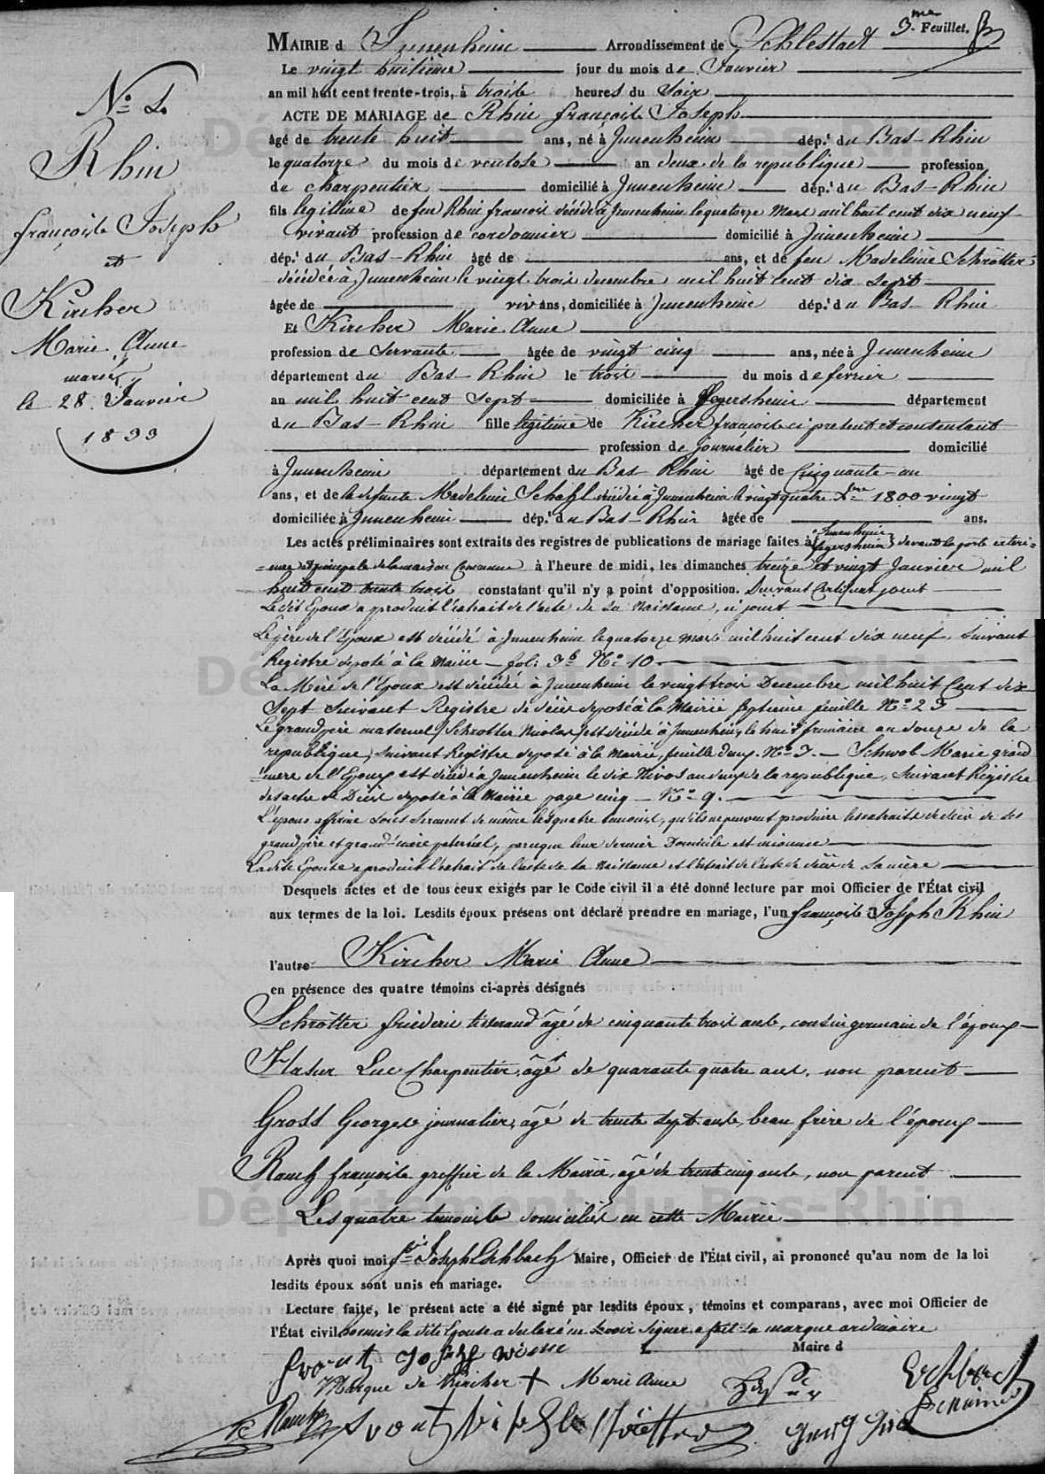 3.me Feuillet.
MAIRIE d Jnnenheim Arrondissement de Schlestadt
Le vingt huitième jour du mois de Janvier
an mil huit cent trente-trois, à trois heures du Soir
ACTE DE MARIAGE de Rhin françois Joseph
âgé de trente huit ans, né à Jnnenheim dép.t du Bas-Rhin
le quatorze du mois de ventose an deux de la republique profession
de charpentier domicilié à Jnnenheim dép.t du Bas-Rhin
fils legitime de feu Rhin francois décédé à Jnnenheim le quatorze Mars mil huit cent dix neuf
vivant profession de cordonnier domicilié à Jnnenheim
dép.t du Bas-Rhin âgé de ans, et de feu Madeleine Schrötter
décédée à Jnnenheim le vingt trois decembre mil huit cent dix sept
âgée de ans, domiciliée à Jnnenheim dép.t du Bas-Rhin
Et Kircher Marie Anne
profession de Servante âgée de vingt cinq ans, née à Jnnenheim
département du Bas-Rhin le trois du mois de fevrier
an mil huit cent sept domiciliée à fegersheim département
du Bas-Rhin fille legitime de Kircher françois ci présent et consentant
profession de journalier domicilié
à Jnnenheim département du Bas-Rhin âgé de Cinquante-un
ans, et de la defunte Madeleine décédée à Jnnenheim le vingt quatre 1800 vingt
domiciliée à Jnnenheim dép.t du Bas-Rhin âgée de ans.
Les actes préliminaires sont extraits des registres de publications de mariage faites à Jnnenheim fegersheim devant la porte exteri-
-eure et principale de la maison Commune à l'heure de midi, les dimanches treize et vingt Janvier mil
huit cent trente trois constatant qu'il n'y a point d'opposition. Suivant Certificat joint
Ledit Epoux a produit l'extrait de l'acte de Sa Naissance, ci joint
Le père de l'Epoux est décédé à Jnnenheim le quatorze Mars mil huit cent dix neuf, Suivant
Registre déposé à la Mairie fol: 3 No 10
La Mère de l'Epoux est décédée à Jnnenheim le vingt trois Decembre mil huit Cent dix
Sept Suivant Registre de décès déposé à la Mairie Septième feuille No 23
Le grand père maternel Schrotter Nicolas est décédé à Jnnenheim, le huit frimaire an douze de la
republique, Suivant Registre déposé à la Mairie, feuille deux, No 3. Schwob Marie grand
mere de l'Epoux est décédée à Jnnenheim le dix Nivos an de la republique, Suivant Régistre
des actes de Décès déposé à la Mairie page cinq No 9.
L'epoux affirme Sous Serment de même les quatre temoins, qu'ils ne peuvent produire les extraits de décès de ses
grand père et grand'mère paternel, parceque leur dernier Domicile est inconnue
Ladite Epouse a produit l'extrait de l'acte de Sa Naissance et l'extrait de l'acte de décès de Sa mère
Desquels actes et de tous ceux exigés par le Code civil il a été donné lecture par moi Officier de l'État civil
aux termes de la loi. Lesdits époux présens ont déclaré prendre en mariage, l'un françois Joseph Rhin
l'autre Kircher Marie Anne
en présence des quatre témoins ci-après désignés
Schrötter friederic tisserand âgé de cinquante trois ans, cousin germain de l'époux
Luc Charpentier, âgé de quarante quatre ans, non parent
Gross George journalier, âgé de trente sept ans, beau frère de l'époux
françois greffier de la Mairie, âgé de trente cinq ans, non parent
Les quatre temoins domiciliés en cette Mairie
Après quoi moi Joseph Eschbach Maire, Officier de l'État civil, ai prononcé qu'au nom de la loi
lesdits époux sont unis en mariage.
Lecture faite, le présent acte a été signé par lesdits époux, témoins et comparans, avec moi Officier de
l'État civil, la dite Epouse a declaré ne Savoir Signer a fait Sa marque ordinaire
Maire d
Marque de Kircher + Marie Anne
Eschbach
No 2.
Rhin
françois Joseph
et
Kircher
Marie Anne
mariés
le 28. Janvier
1833
Département du Bas-Rhin